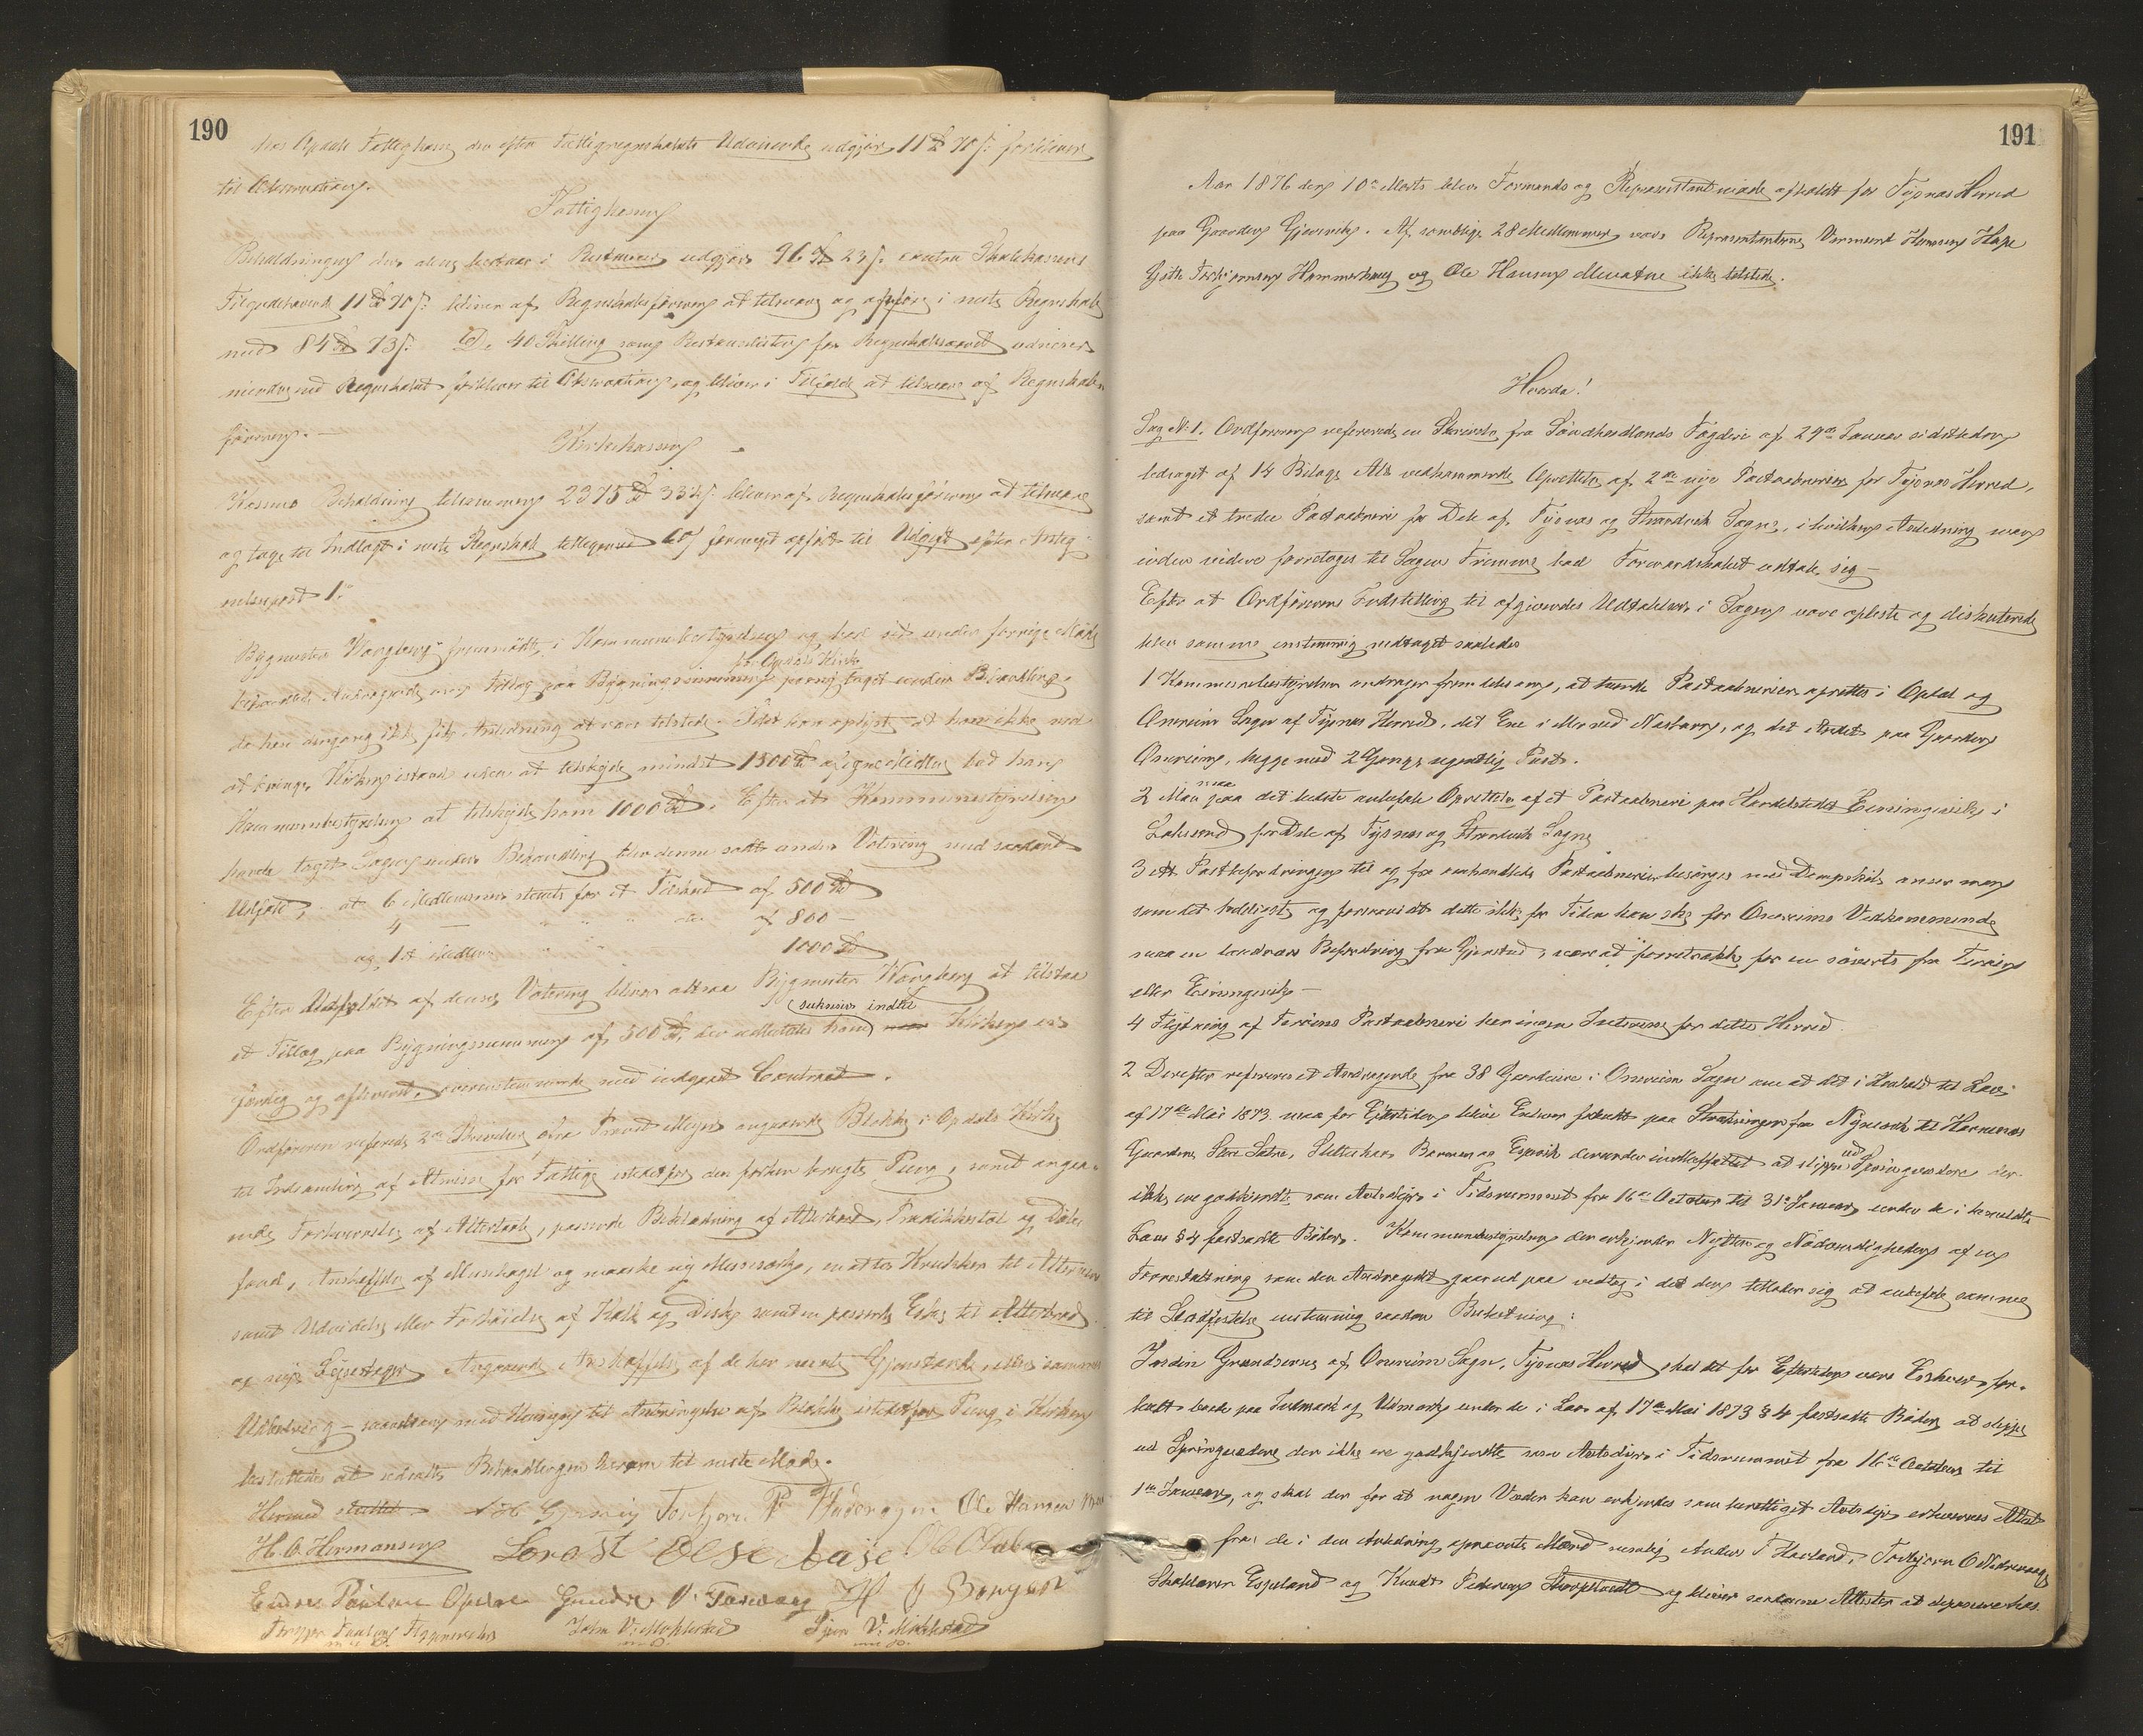 190
hos Opdals Fattigkasse, der efter Fattigregnskabets Udvisende udgjør 11 Spd 70 s: forbliver
til Observation.
Fattigkassen
Beholdningen der alene bestaar i Restancer udgjør 96 Spd 23 s. Skolekassens
Tilgodehavende 11 Spd 70 s: bliver af Regnskabsføreren at tilsvare og opføre i neste Regnskab
med 84 Spd 73 s. De 40 Skilling som Restancelisten for Regnskabsaaret udviser
mindre end Regnskabet forbliver til Observation, og bliver i Tilfælde at tilsvare af Regnskabs
føreren. —
Kirkekassen
Kassens Beholdning tilsammen 2375 Spd 33½ s. bliver af Regnskabsføreren at tilsvare
og tage til Indtægt i neste Regnskab tilligemed 60 s formeget opført til Udgift efter Anteg-
nelsespost 1.
Bygmester Vangberg fremmødte i Kommunebestyrelsen og bad sit under forrige Møde
behandlede Andragende om Tillæg paa Bygningssummen for Opdals Kirke paany taget under Behandling
da han dengang ikke fik Anledning at være tilstede. Idet han oplyste at han ikke ved
at bringe Kirken istand uden at tilskyde mindst 1500 Spd af egne Midler bad han
Kommunebestyrelsen at tilskyde ham 1000 Spd. Efter at Kommunestyrelsen
havde taget Sagen under Behandling blev denne satt under Votering med saadant
Udfald, at 6 Medlemmer stemte for et Tilskud af 500 Spd
4 — " " " do. af 800 —
og 1 st Medlem " " 1000 Spd
Efter Udfaldet af denne Votering bliver altsaa Bygmester Vangberg at tilstaa
et Tillæg paa Bygningssummen af 500 Spd, der udbetales ham saksnart indtil Kirken er
færdig og afleveret, overensstemmende med indgaaet Contract.
Ordføreren refererede 2de Skrivelser fra Provst Meyer angaaende Blokke i Opdals Kirke
til Indsamling af Almisse for Fattige istedetfor den forhen brugte Pung, samt angaa-
ende Forfærdelse af Altertavle, passende Beklædning af Alterbord, Prædikestol og Døbe
fond, Anskaffelse af Messehagel og maaske ny Messesærk, en à to Krukker til Altervin
samt Udvidelse eller Forhøielse af Kalk og Disk samt en passende Eske til Alterbrød
og nye Lysestager. Angaaende Anskaffelse af de her nevnte Gjenstande
Udbedring — saavelsom med Hensyn til Anbringelse af Blokke istedetfor Pung i Kirken
besluttedes at udsætte Behandlingen herom til neste Møde.
Hermed sluttet. N H Gjerseig Torbjørn P Hadongjen Ole Hansen
H. O. Hermansen Larost Olse Aase Ole Olsen
Endre Paulsen Opdal Gunder V. Tærvaag H J Bergest
John V: Myklestad Sjur V: Myklestad
m.p.
191
Aar 1876 den 10de Marts blev Formands og Repræsentantmøde afholdt for Tysnæs Herred
paa Gaarden Gjerevik. Af samtlige 28 Medlemmer vare Repræsentanterne Vermund Hansen Hage
Gjøth Torbjørnsen Hammerhaug og Ole Hansen Mevatne ikke tilstede.
Hvorda!
Sag No 1. Ordføreren refererede en Skrivelse fra Søndhordlands Fogderi af 29de Januar sidstleden
ledsaget af 14 Bilage Alt vedkommende Oprettelse af 2de nye Postaabnerier for Tysnæs Herred,
samt et tredie Postaabneri for Dele af Tysnæs og Strandvik Sogne, i hvilken Anledning man
inden videre foretages til Sagens Fremme bad Formandskabet udtale sig —
Efter at Ordførerens Indstilling til afgivendes Udtalelse i Sagen vare oplæste og diskuterede
blev samme enstemmig vedtaget saaledes
1 Kommunebestyrelsen andrager fremdeles om, at tvende Postaabnerier oprettes i Opdal og
Onerheim Sogn af Tysnæs Herred, det Ene i Mæ ved Neshavn, og det Andet paa Gaarden
Onereim, begge med 2 Gange ugentlig Post.
2 Man maa paa det bedste anbefale Oprettelse af et Postaabneri paa Handelstedet Einingevik i
Luksund for Dele af Tysnæs og Strandvik Sogne
3 At Postbefordringen til og fra omhandlede Postaabnerier besørges med Dampskib anser man
som det heldigste, og forsaavidt dette ikke for Tiden kan ske for Onereims Vedkommende
maa en landværts Befordring fra Gjerstad, være at foretrække for en søverts fra Terøen
eller Einingevik —
4 Flytning af Terøens Postaabneri har ingen Interesse for dette Herred.
2 Derefter refereres et Andragende fra 38 Gaardeiere i Onereim Sogn om at det i Henhold til Lov
af 17de Mai 1873 maa for Eftertiden blive Enhver forbudt paa Strækningen fra Nymark til Hovnenæs
Gaardene Store Satre, Slettebø, Barmen og Espevik derunder indbefattet at slippe ud Springvædere der
ikke ere godkjendte som Avlsdyr i Tidsrummet fra 16de October til 31te Januar under de i bemeldte
Lovs § 4 fastsatte Bøder. Kommunebestyrelsen der erkjender Nytten og Nødvendigheden af en
Foranstaltning som den Andragendet gaar ud paa vedtog i det den tillader sig at anbefale samme
til Stadfestelse enstemmig saadan Beslutning:
Inden Grændserne af Onereim Sogn, Tysnæs Herred skal det for Eftertiden være Enhver for-
budt baade paa Indmark og Udmark under de i Lov af 17de Mai 1873 § 4 fastsatte Bøder at slippe
ud Springvædere der ikke ere godkjendte som Avlsdyr i Tidsrummet fra 16de October til
1ste Januar, og skal der for at nogen Væder kan erkjendes som berettiget Avlsdyr erhverves Attest
fra de i den Anledning opnævnte Mænd nemlig Anders T Havland, Torbjørn O Nedrevaag
Skoleholder Espeland og Knudt Pedersen og bliver saadanne Attester at deponere hos